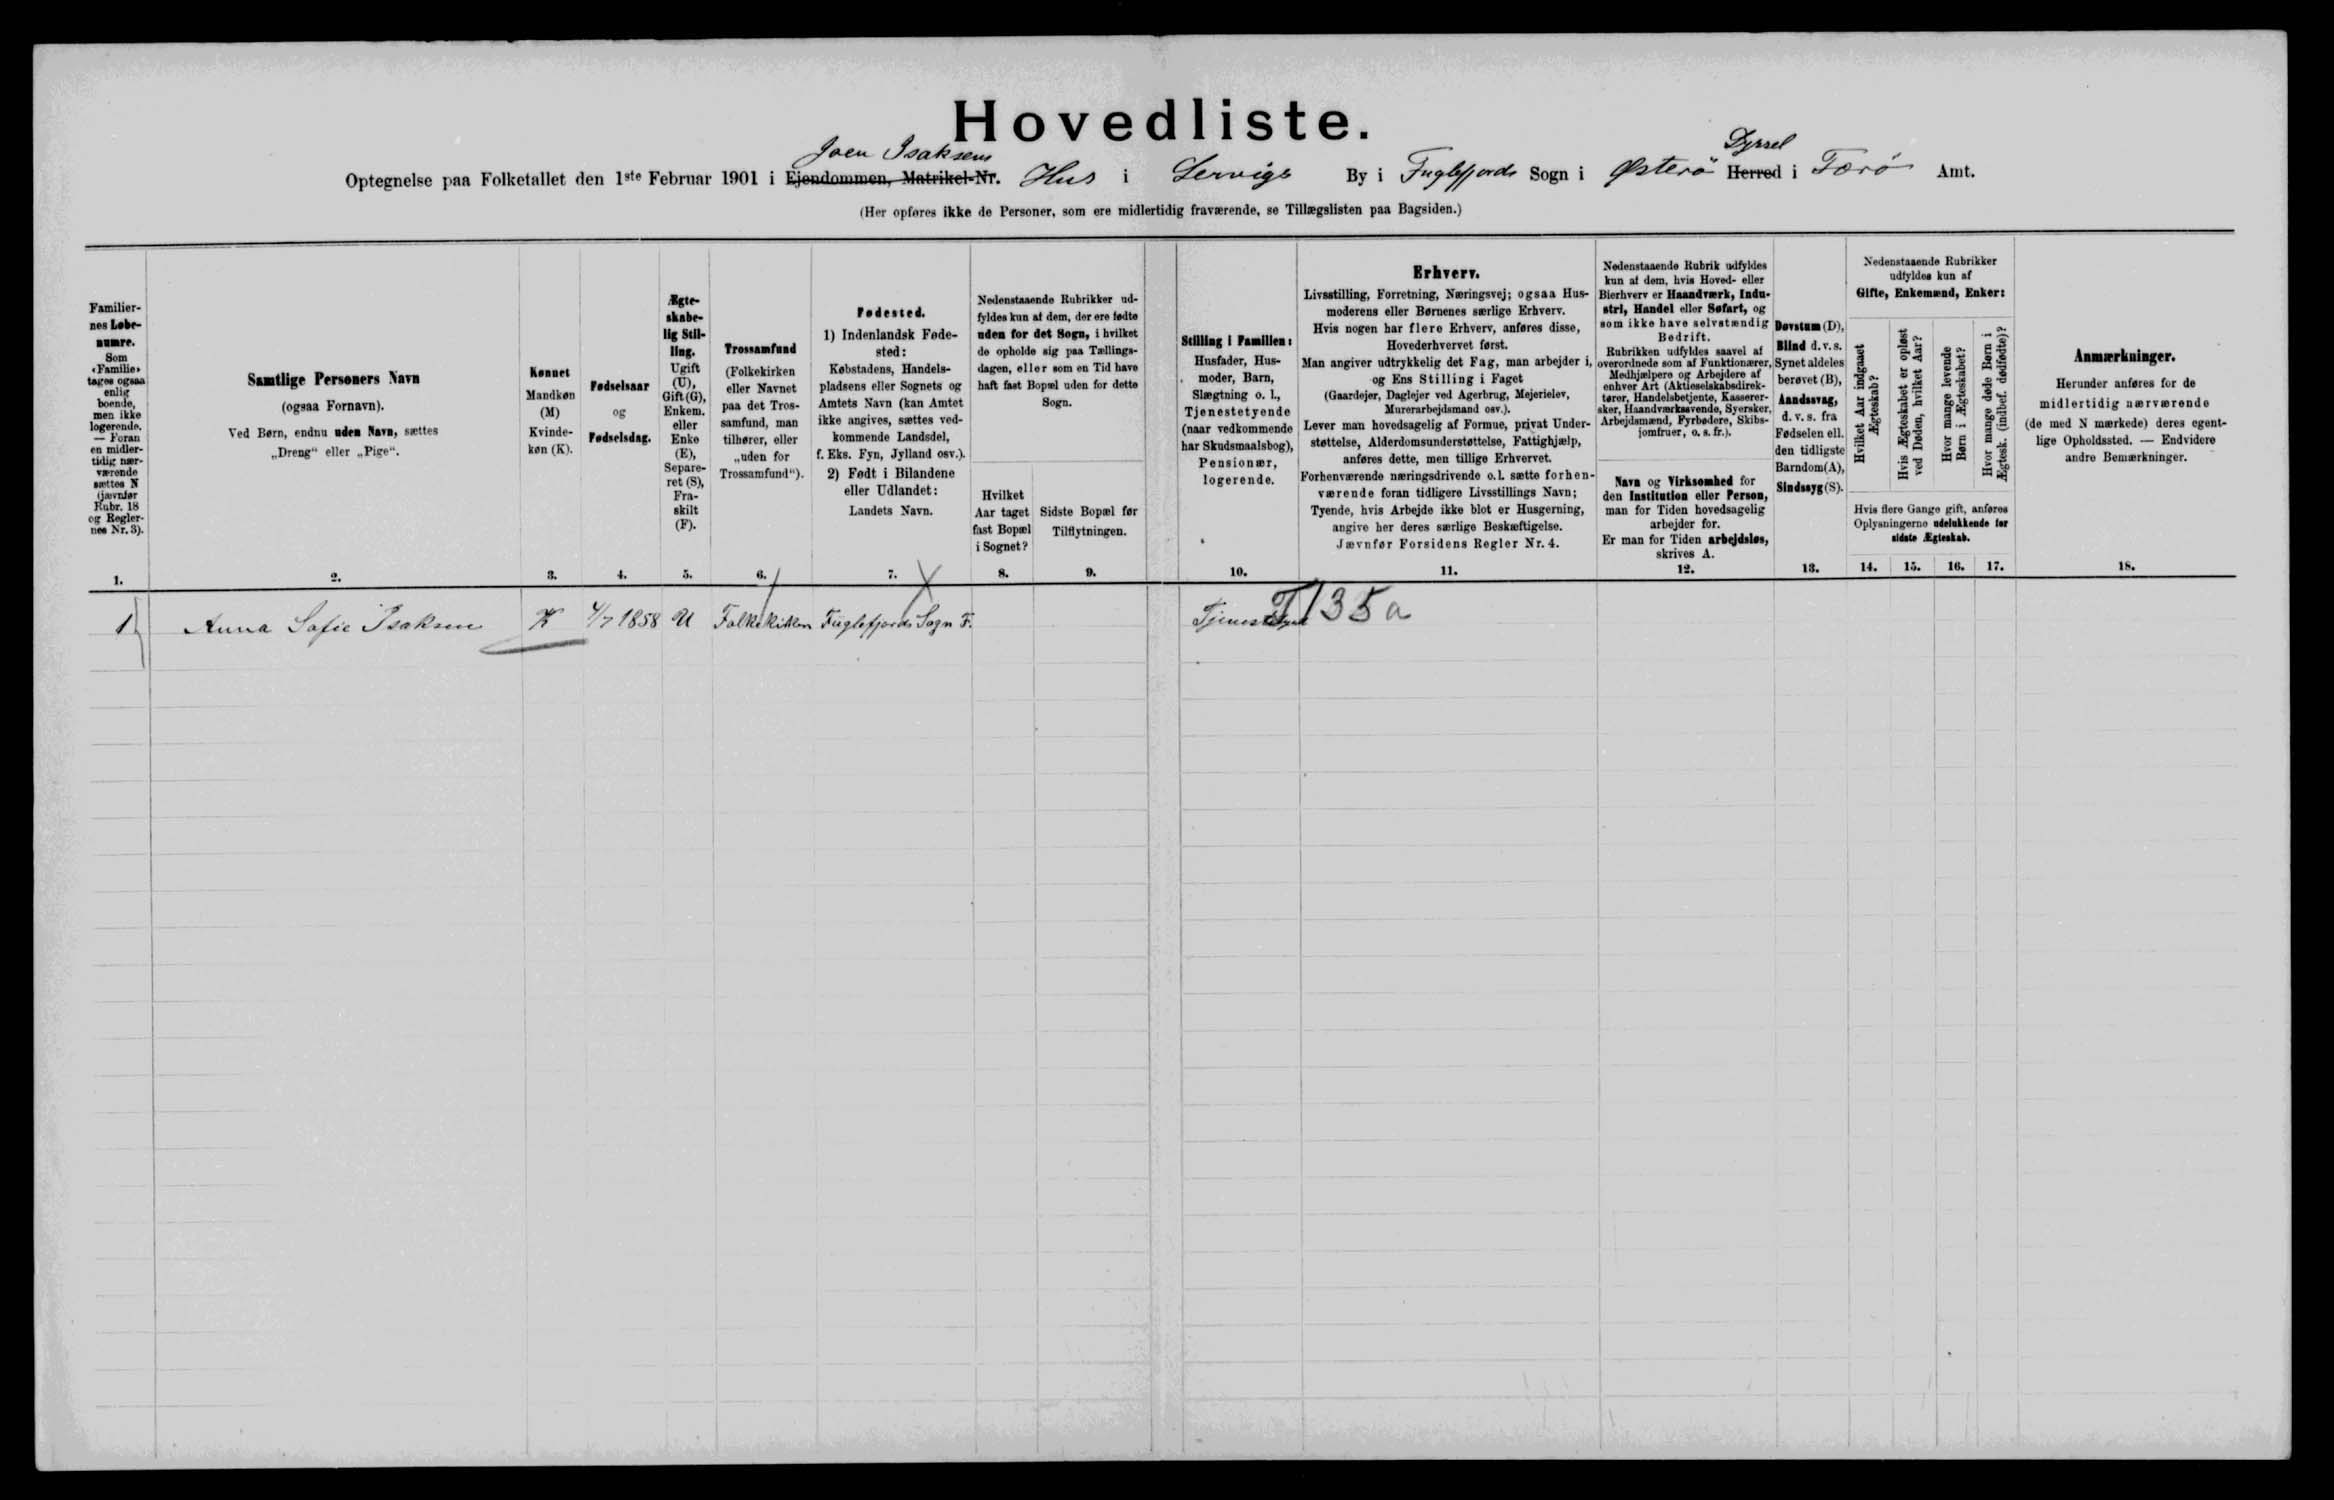 Hovedliste.
Joen Isaksens
Syssel
Optegnelse paa Folketallet den 1ste Februar 1901 i Ejendommen, Matrikel-Nr. Hus i Lervigs By i Fuglefjords Sogn i Østerö Herred i Færö Amt.
(Her opføres ikke de Personer, som ere midlertidig fraværende, se Tillægslisten paa Bagsiden.)
Familier-
nes Løbe-
numre.
Som
«Familie»
tages ogsaa
enlig
boende,
men ikke
logerende.
— Foran
en midler-
tidig nær-
værende
sættes N
(jævnfør
Rubr. 18
og Regler-
nes Nr. 3).
1.
Samtlige Personers Navn
(ogsaa Fornavn).
Ved Børn, endnu uden Navn, sættes
„Dreng“ eller „Pige“.
2.
Kønnet
Mandkøn
(M)
Kvinde-
køn (K).
3.
Fødselsaar
og
Fødselsdag.
4.
Ægte-
skabe-
lig Stil-
ling.
Ugift
(U),
Gift (G),
Enkem.
eller
Enke
(E),
Separe-
ret (S),
Fra-
skilt
(F).
5.
Trossamfund
(Folkekirken
eller Navnet
paa det Tros-
samfund, man
tilhører, eller
„uden for
Trossamfund“).
6.
Fødested.
1) Indenlandsk Føde-
sted:
Købstadens, Handels-
pladsens eller Sognets og
Amtets Navn (kan Amtet
ikke angives, sættes ved-
kommende Landsdel,
f. Eks. Fyn, Jylland osv.).
2) Født i Bilandene
eller Udlandet:
Landets Navn.
7.
Nedenstaaende Rubrikker ud-
fyldes kun af dem, der ere fødte
uden for det Sogn, i hvilket
de opholde sig paa Tællings-
dagen, eller som en Tid have
haft fast Bopæl uden for dette
Sogn.
Hvilket
Aar taget
fast Bopæl
i Sognet?
8.
Sidste Bopæl før
Tilflytningen.
9.
Stilling i Familien:
Husfader, Hus-
moder, Barn,
Slægtning o. l.,
Tjenestetyende
(naar vedkommende
har Skudsmaalsbog),
Pensionær,
logerende.
10.
Erhverv.
Livsstilling, Forretning, Næringsvej; ogsaa Hus-
moderens eller Børnenes særlige Erhverv.
Hvis nogen har flere Erhverv, anføres disse,
Hovederhvervet først.
Man angiver udtrykkelig det Fag, man arbejder i,
og Ens Stilling i Faget
(Gaardejer, Daglejer ved Agerbrug, Mejerielev,
Murerarbejdsmand osv.).
Lever man hovedsagelig af Formue, privat Under-
støttelse, Alderdomsunderstøttelse, Fattighjælp,
anføres dette, men tillige Erhvervet.
Forhenværende næringsdrivende o.l. sætte forhen-
værende foran tidligere Livsstillings Navn;
Tyende, hvis Arbejde ikke blot er Husgerning,
angive her deres særlige Beskæftigelse.
Jævnfør Forsidens Regler Nr. 4.
11.
Nedenstaaende Rubrik udfyldes
kun af dem, hvis Hoved- eller
Bierhverv er Haandværk, Indu-
stri, Handel eller Søfart, og
som ikke have selvstændig
Bedrift.
Rubrikken udfyldes saavel af
overordnede som af Funktionærer,
Medhjælpere og Arbejdere af
enhver Art (Aktieselskabsdirek-
tører, Handelsbetjente, Kasserer-
sker, Haandværkssvende, Syersker,
Arbejdsmænd, Fyrbødere, Skibs-
jomfruer, o. s. fr.).
Navn og Virksomhed for
den Institution eller Person,
man for Tiden hovedsagelig
arbejder for.
Er man for Tiden arbejdsløs,
skrives A.
12.
Døvstum (D),
Blind d.v.s.
Synet aldeles
berøvet (B),
Aandssvag,
d. v. s. fra
Fødselen ell.
den tidligste
Barndom (A),
Sindssyg (S).
13.
Nedenstaaende Rubrikker
udfyldes kun af
Gifte, Enkemænd, Enker:
Hvilket Aar indgaaet
Ægteskab?
Hvis Ægteskabet er opløst
ved Døden, hvilket Aar?
Hvor mange levende
Børn i Ægteskabet?
Hvor mange døde Børn i
Ægtesk. (indbef. dødfødte)?
Hvis flere Gange gift, anføres
Oplysningerne udelukkende for
sidste Ægteskab.
14. 15. 16. 17.
Anmærkninger.
Herunder anføres for de
midlertidig nærværende
(de med N mærkede) deres egent-
lige Opholdssted. — Endvidere
andre Bemærkninger.
18.
1 Anna Sofie Isaksen K 4/7 1858 U Folkekirken Fuglefjords Sogn F. T 35 a